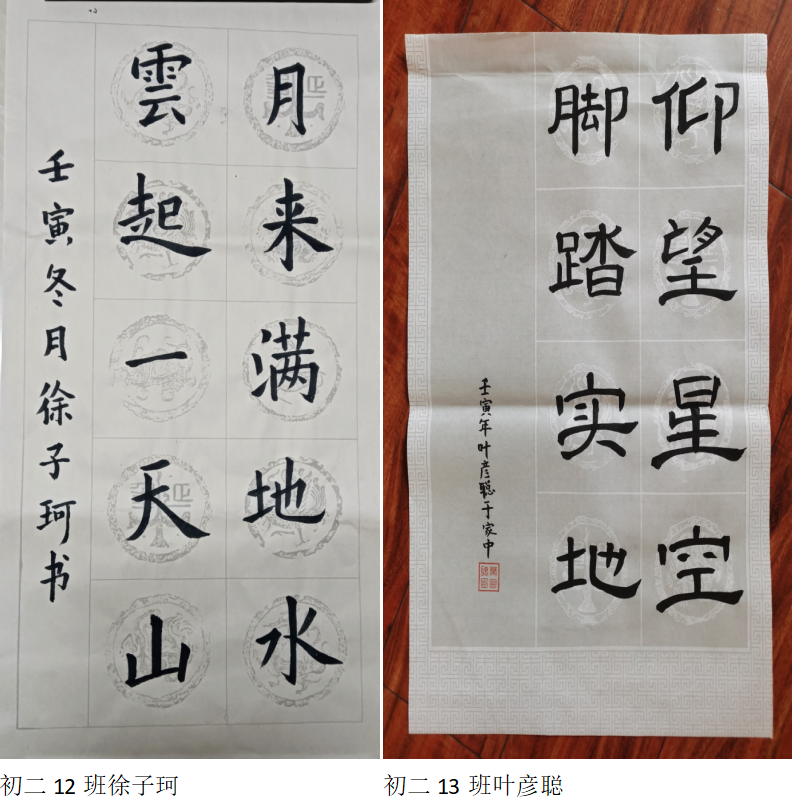 月来满地水
雲起一天山
壬寅冬月徐子珂书
仰望星空
脚踏实地
壬寅年叶彦聪于家中
初二 12 班徐子珂
初二 13 班叶彦聪